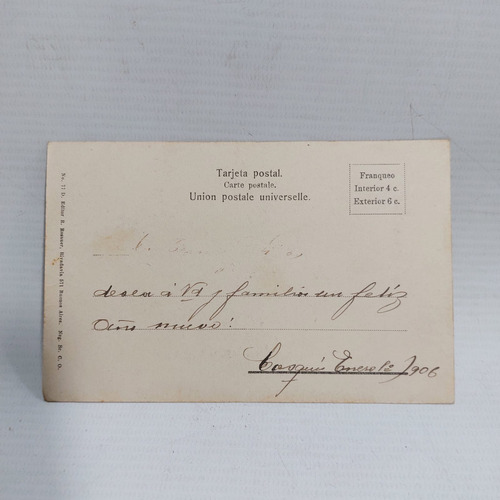 Tarjeta postal.
Carte postale.
Union postale universelle.
Franqueo
Interior 4 c.
Exterior 6 c.
desea á Vd y familia un feliz
año nuevo!
Enero 1º/906
Editor R. Rosauer, Rivadavia 571 Buenos Aires.